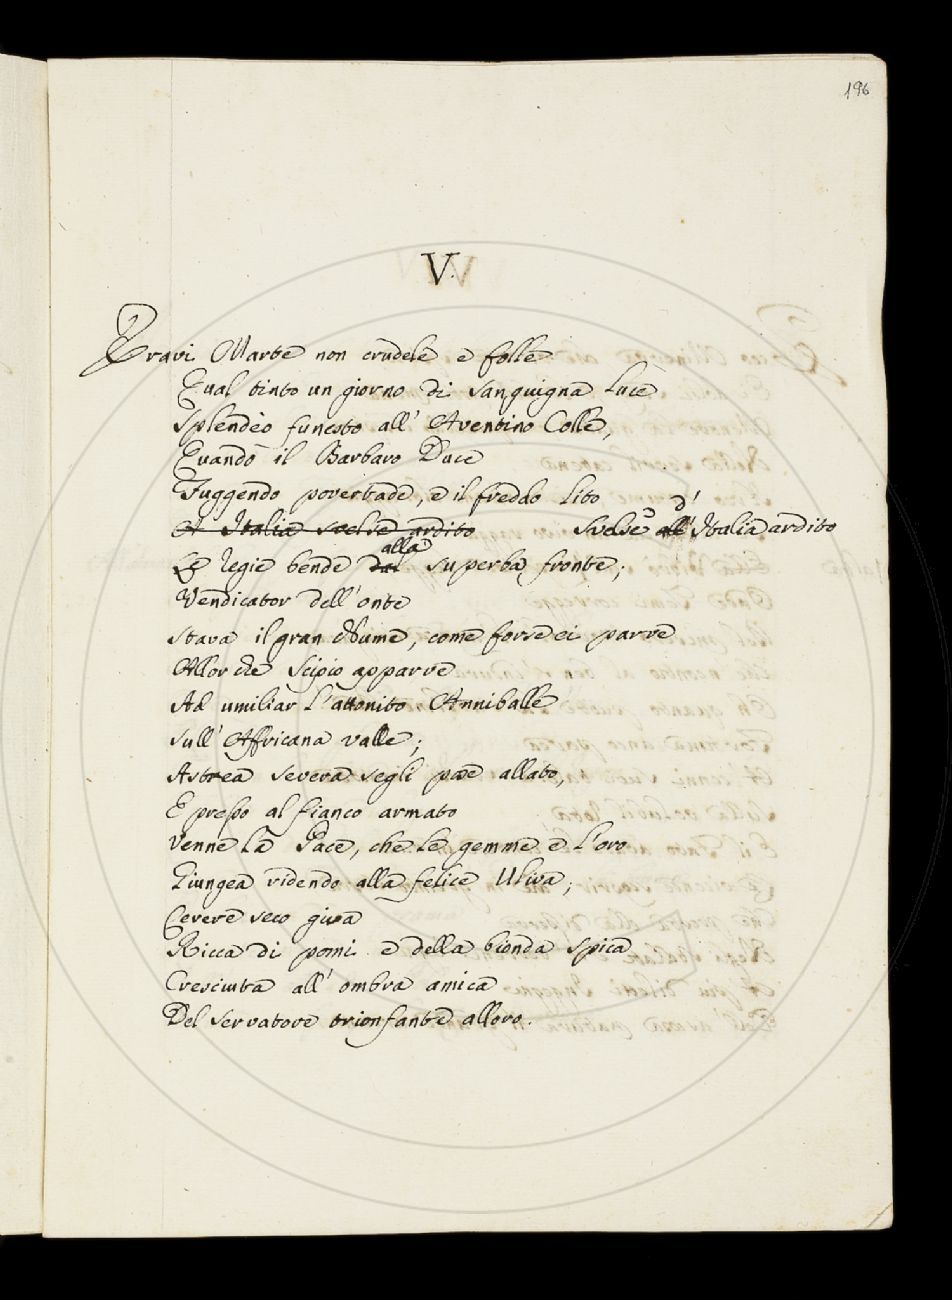 196
V.
Eravi Marte non crudele e folle
Qual tinto un giorno di sanguigna luce
Splendèo funesto all' Aventino Colle,
Quando il Barbaro Duce
Fuggendo povertade, e il freddo lito
A Italia svelse ardito Svelse all' d' Italia ardito
Le regie bende dal alla superba fronte;
Vendicator dell' onte
Stava il gran Nume, come forse ei parve
Allor che Scipio apparve
Ad umiliar l'attonito Anniballe
Sull' Affricana valle;
Astrea severa segli pose allato,
E presso al fianco armato
Venne la Pace, che le gemme e l'oro
Giungea ridendo alla felice Uliva;
Cerere seco giva
Ricca di pomi e della bionda spica
Cresciuta all' ombra amica
Del servatore trionfante alloro.